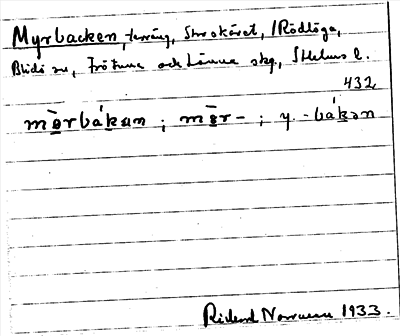 Myrbacken, terräng, Storskäret, /Rödlöga,
Blidö sn, Frötuna och Länna skg, Sthlms l.
432
mèrbákan ; mer- ; y. -bákən
Rickard Norrman 1933.